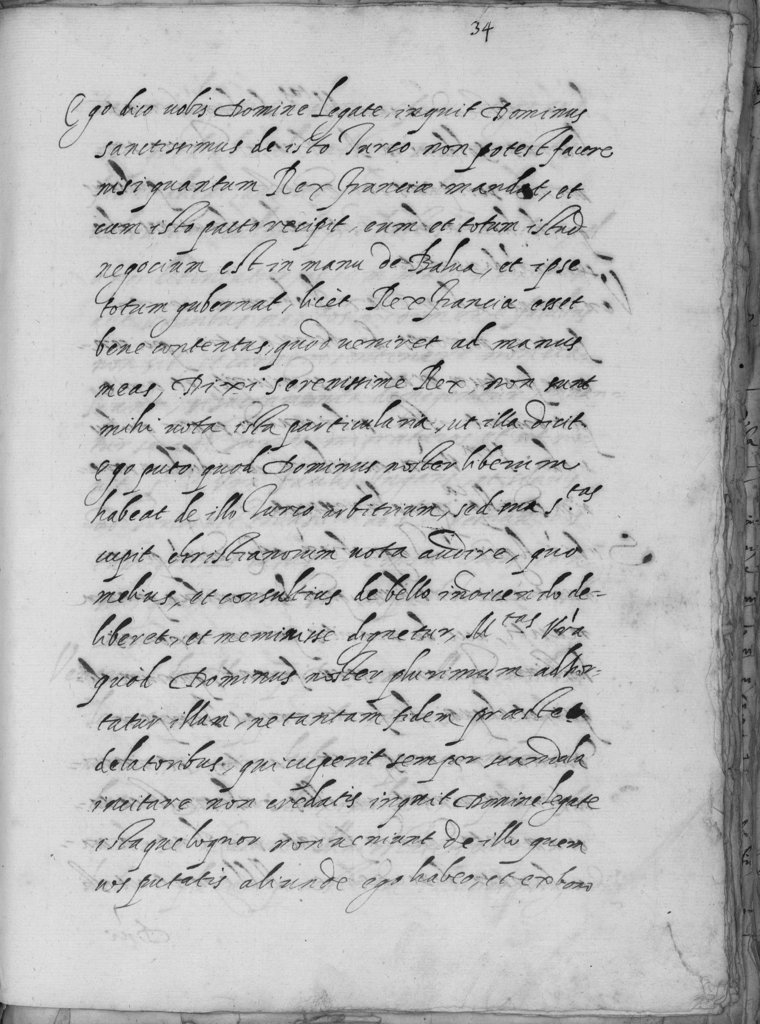 34
Ego dico vobis Domine Legate, inquit Dominus
sanctissimus de isto Turco non potest facere
nisi quantum Rex franciæ mandat, et
cum isto pacto recipit, eum et totum istud
negocium est in manu de Balua, et ipse
totum gubernat, licet Rex franciæ esset
bene contentus, quod veniret ad manus
meas, Dixi serenissime Rex, non sunt
mihi nota ista particularia, ut illa dicit
ego puto quod Dominus noster liberum
habeat de illo Turco arbitrium, sed ma s.tas
cupit christianorum vota audire, quo
melius, et consultius de bello indicendo de=
liberet, et meminisse dignetur, M.tas Vrã
quod Dominus noster plurimum adhor-
tatur illam, ne tantam fidem præstet
delatoribus, qui cuperit semper scandala
incitare non credatis inquit Domine legate
ista que loquor non veniunt de illo quem
vos putatis aliunde ego habeo, et ex bono